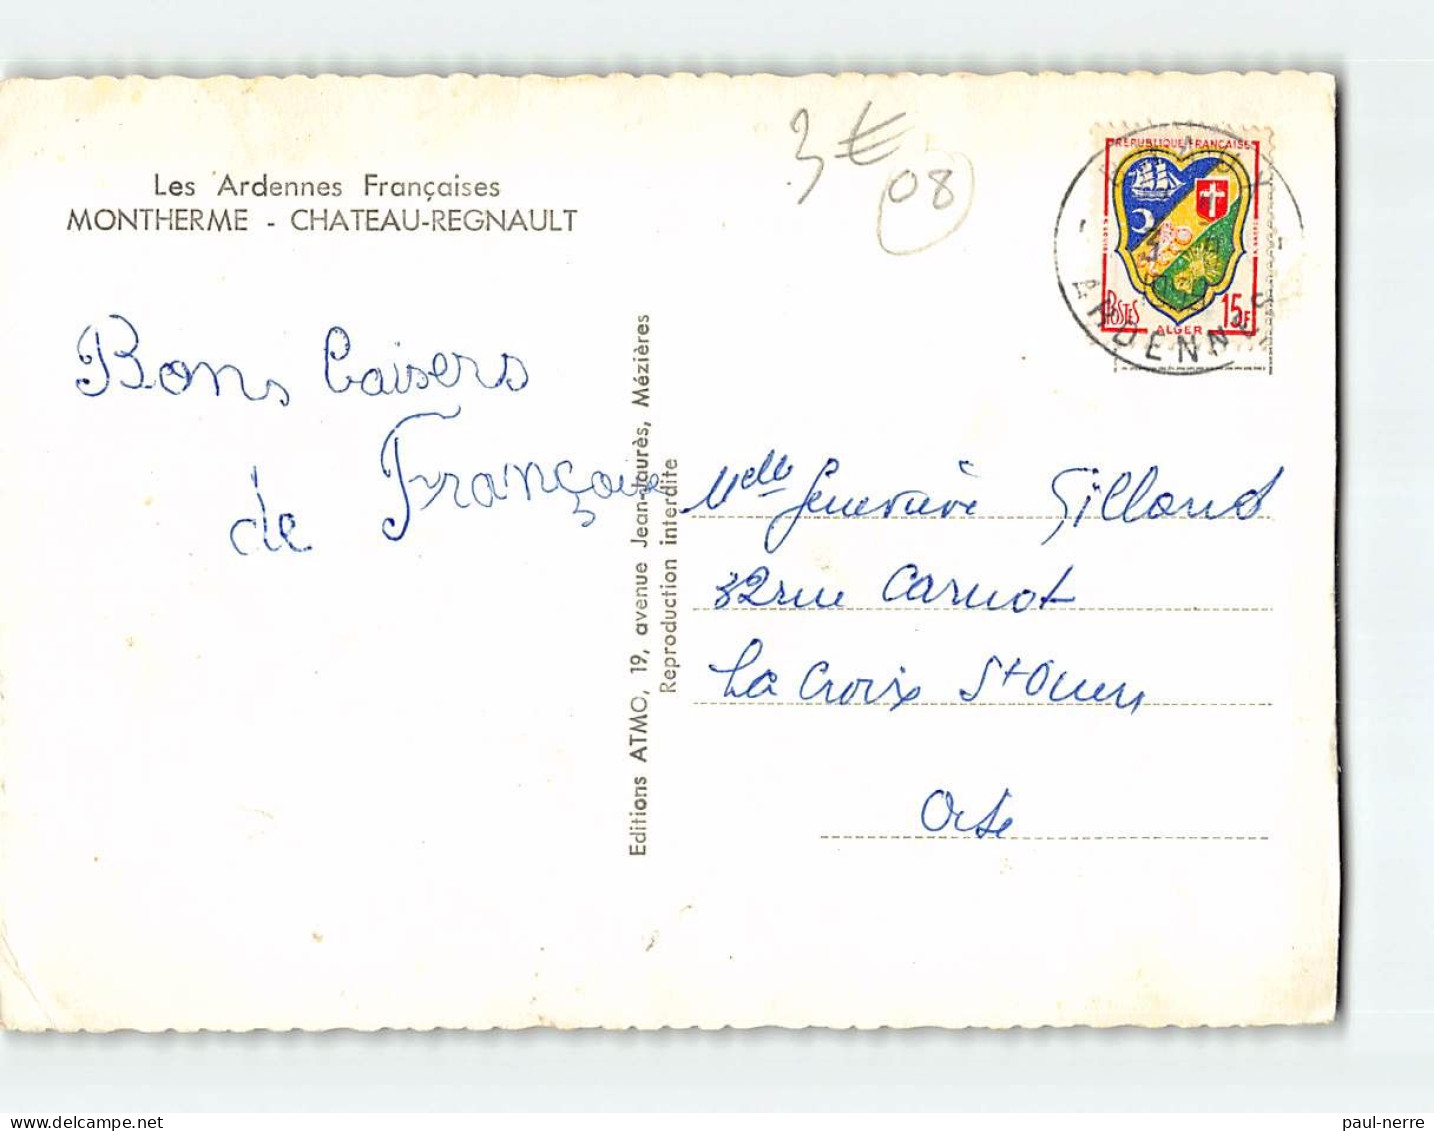 Les Ardennes Françaises
MONTHERME - CHATEAU-REGNAULT
3 €
08
RÉPUBLIQUE FRANÇAISE
POSTES
ALGER
15F
ARDENNES
Bons baisers
de Françoise
Editions ATMO, 19, avenue Jean-Jaurès, Mézières
Reproduction interdite
Melle Geneviève Gilland
32 rue Carnot
La Croix St Ouen
Oise
paul-nerre